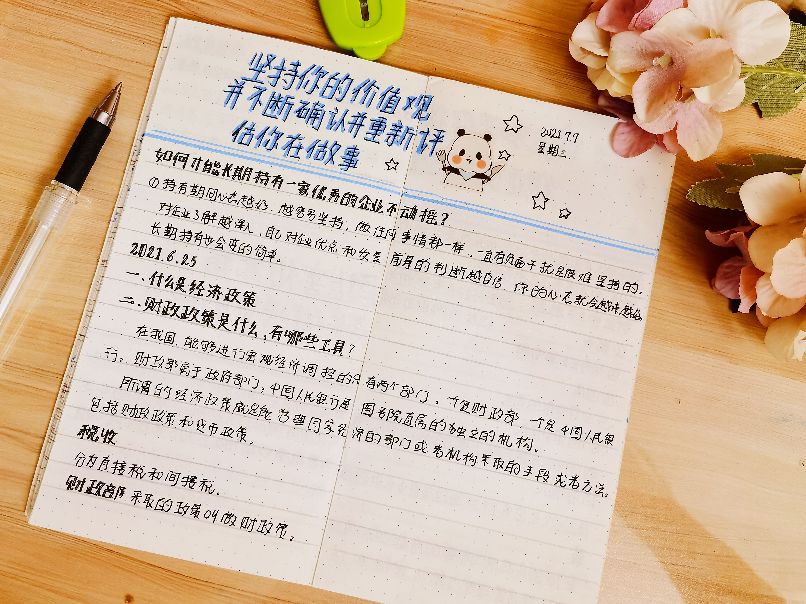 坚持你的价值观
并不断确认并重新评
估你在做事
2021.7.7
星期三
如何才能长期持有一家优秀的企业不动摇？
①持有期间心态越好，越容易坚持，做任何事情都一样，一直有负面干扰是很难坚持的。
对企业了解越深入，自己对企业优点和安全
的判断越自信，你的心态就会越来越好。
长期持有也会变的简单。
2021.6.25
一、什么是经济政策
二、财政政策是什么，有哪些工具？
在我国，能够进行宏观经济调控的只有两个部门，一个是财政部，一个是中国人民银
行。财政部属于政府部门，中国人民银行是国务院直属的独立的机构。
所谓的经济政策就是能管理国家经济的部门或者机构采取的手段或者方法。
包括财政政策和货币政策。
税收
分为直接税和间接税。
财政部采取的政策叫做财政政策。